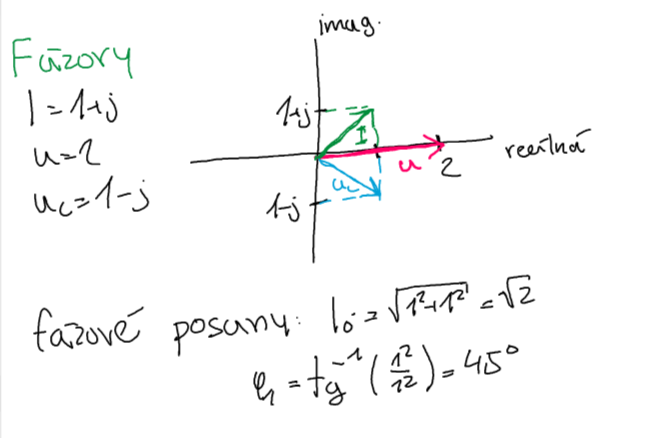 imag.
Fázory
I = 1+j
u = 2
uc = 1-j
1+j
I
reálná
u
2
uc
1-j
fázové posuny: I₀ = √1²+1² = √2
φ₁ = tg⁻¹ (1²/1²) = 45°